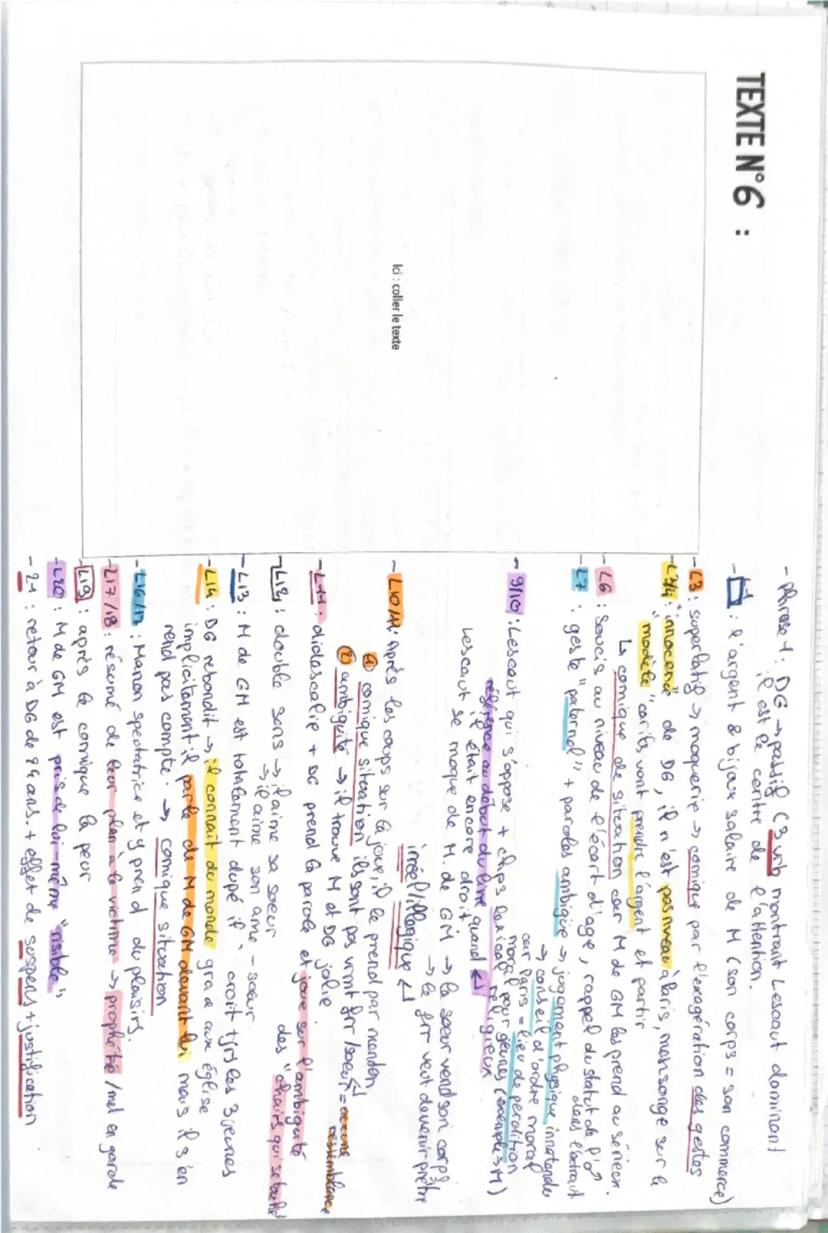 TEXTE N°6 :
Ici : coller le texte
- Phrase 1 : DG → passif (3 vrb montrant Lescaut dominant
il est le centre de l'attention.
- L1 : l'argent & bijoux salaire de M (son corps = son commerce)
- L3 : superlatif → moquerie → comique par l'exagération des gestes
- L3/4 : "innocence" de DG, il n'est pas niveau à Paris, mensonge sur le
"modèle" car ils vont prendre l'argent et partir
↳ comique de situation car M de GM les prend au sérieux.
- L6 : Soucis au niveau de l'écart d'age, rappel du statut de l'♂
- L7 : geste "paternel" + paroles ambigüe → jugement physique innatendu dans l'extrait
→ conseil d'ordre moral
car Paris = lieu de perdition
moral pour jeunes (exemple : M)
- 9/10 : Lescaut qui s'oppose + clups lexical religieux
référence au début du livre quand ↵
il était encore droit
Lescaut se moque de M. de GM → la soeur vend son corps/
→ le frr veut devenir prêtre
irréel/illogique ↵
- L10/11 : après les coups sur la joue, il le prend par menton
① comique situation ils sont pas vrmt frr/soeur = aucune ressemblance
② ambiguïté → il trouve M et DG jolie
- L11 : didascalie + DG prend la parole et joue sur l'ambiguïté
des "chairs qui se touche
- L12 : double sens → il aime sa soeur
→ il aime son ame-soeur
- L13 : M de GM est totalement dupé il "croit tjrs les 3 jeunes
- L14 : DG rebondit → il connait du monde grace aux église
implicitement il parle de M de GM devant lui mais il s'en
rend pas compte. → comique situation
- L16/17 : Manon spectatrice et y prend du plaisirs.
- L17/18 : résumé de leur plan à la victime → prophétie/met en garde
- L19 : après le comique la peur
- L20 : M de GM est pris de lui-même "risible"
- 21 : retour à DG de 24 ans. + effet de suspens + justification